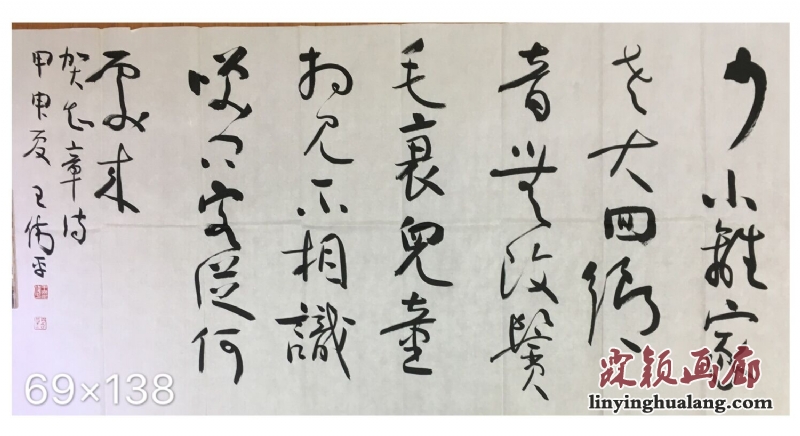 少小離家
老大囬鄉
音無改鬢
毛衰兒童
相見不相識
咲问客從何
處来
贺知章诗
甲申夏 王
69×138
霖颖画廊
linyinghualang.com